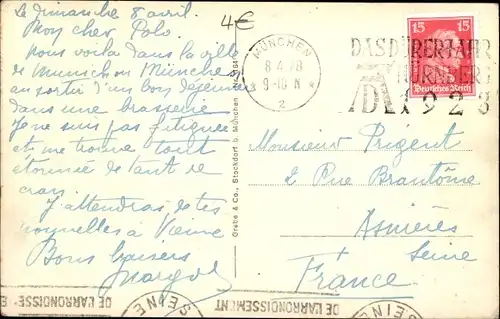 Le dimanche 8 avril
Mon cher Polo
Nous voilà dans la ville
de Munich ou München
au sortir d'un bon déjeuner
dans une brasserie
Je ne suis pas fatiguée
et me trouve tout
étonnée de tant de
cran.
J'attendrai de tes
nouvelles à Vienne
Bons baisers
Margot
4€
MÜNCHEN
8.4.28
9-10 N
2
DAS DÜRERJAHR
NÜRNBERG
1928
15 15
Deutsches Reich
Grebe & Co., Stockdorf b. München
Monsieur Prigent
2 Rue Brantôme
Asnières
Seine
France
DE L'ARRONDISSEMENT
SEINE
DE L'ARRONDISSEMENT
SEINE